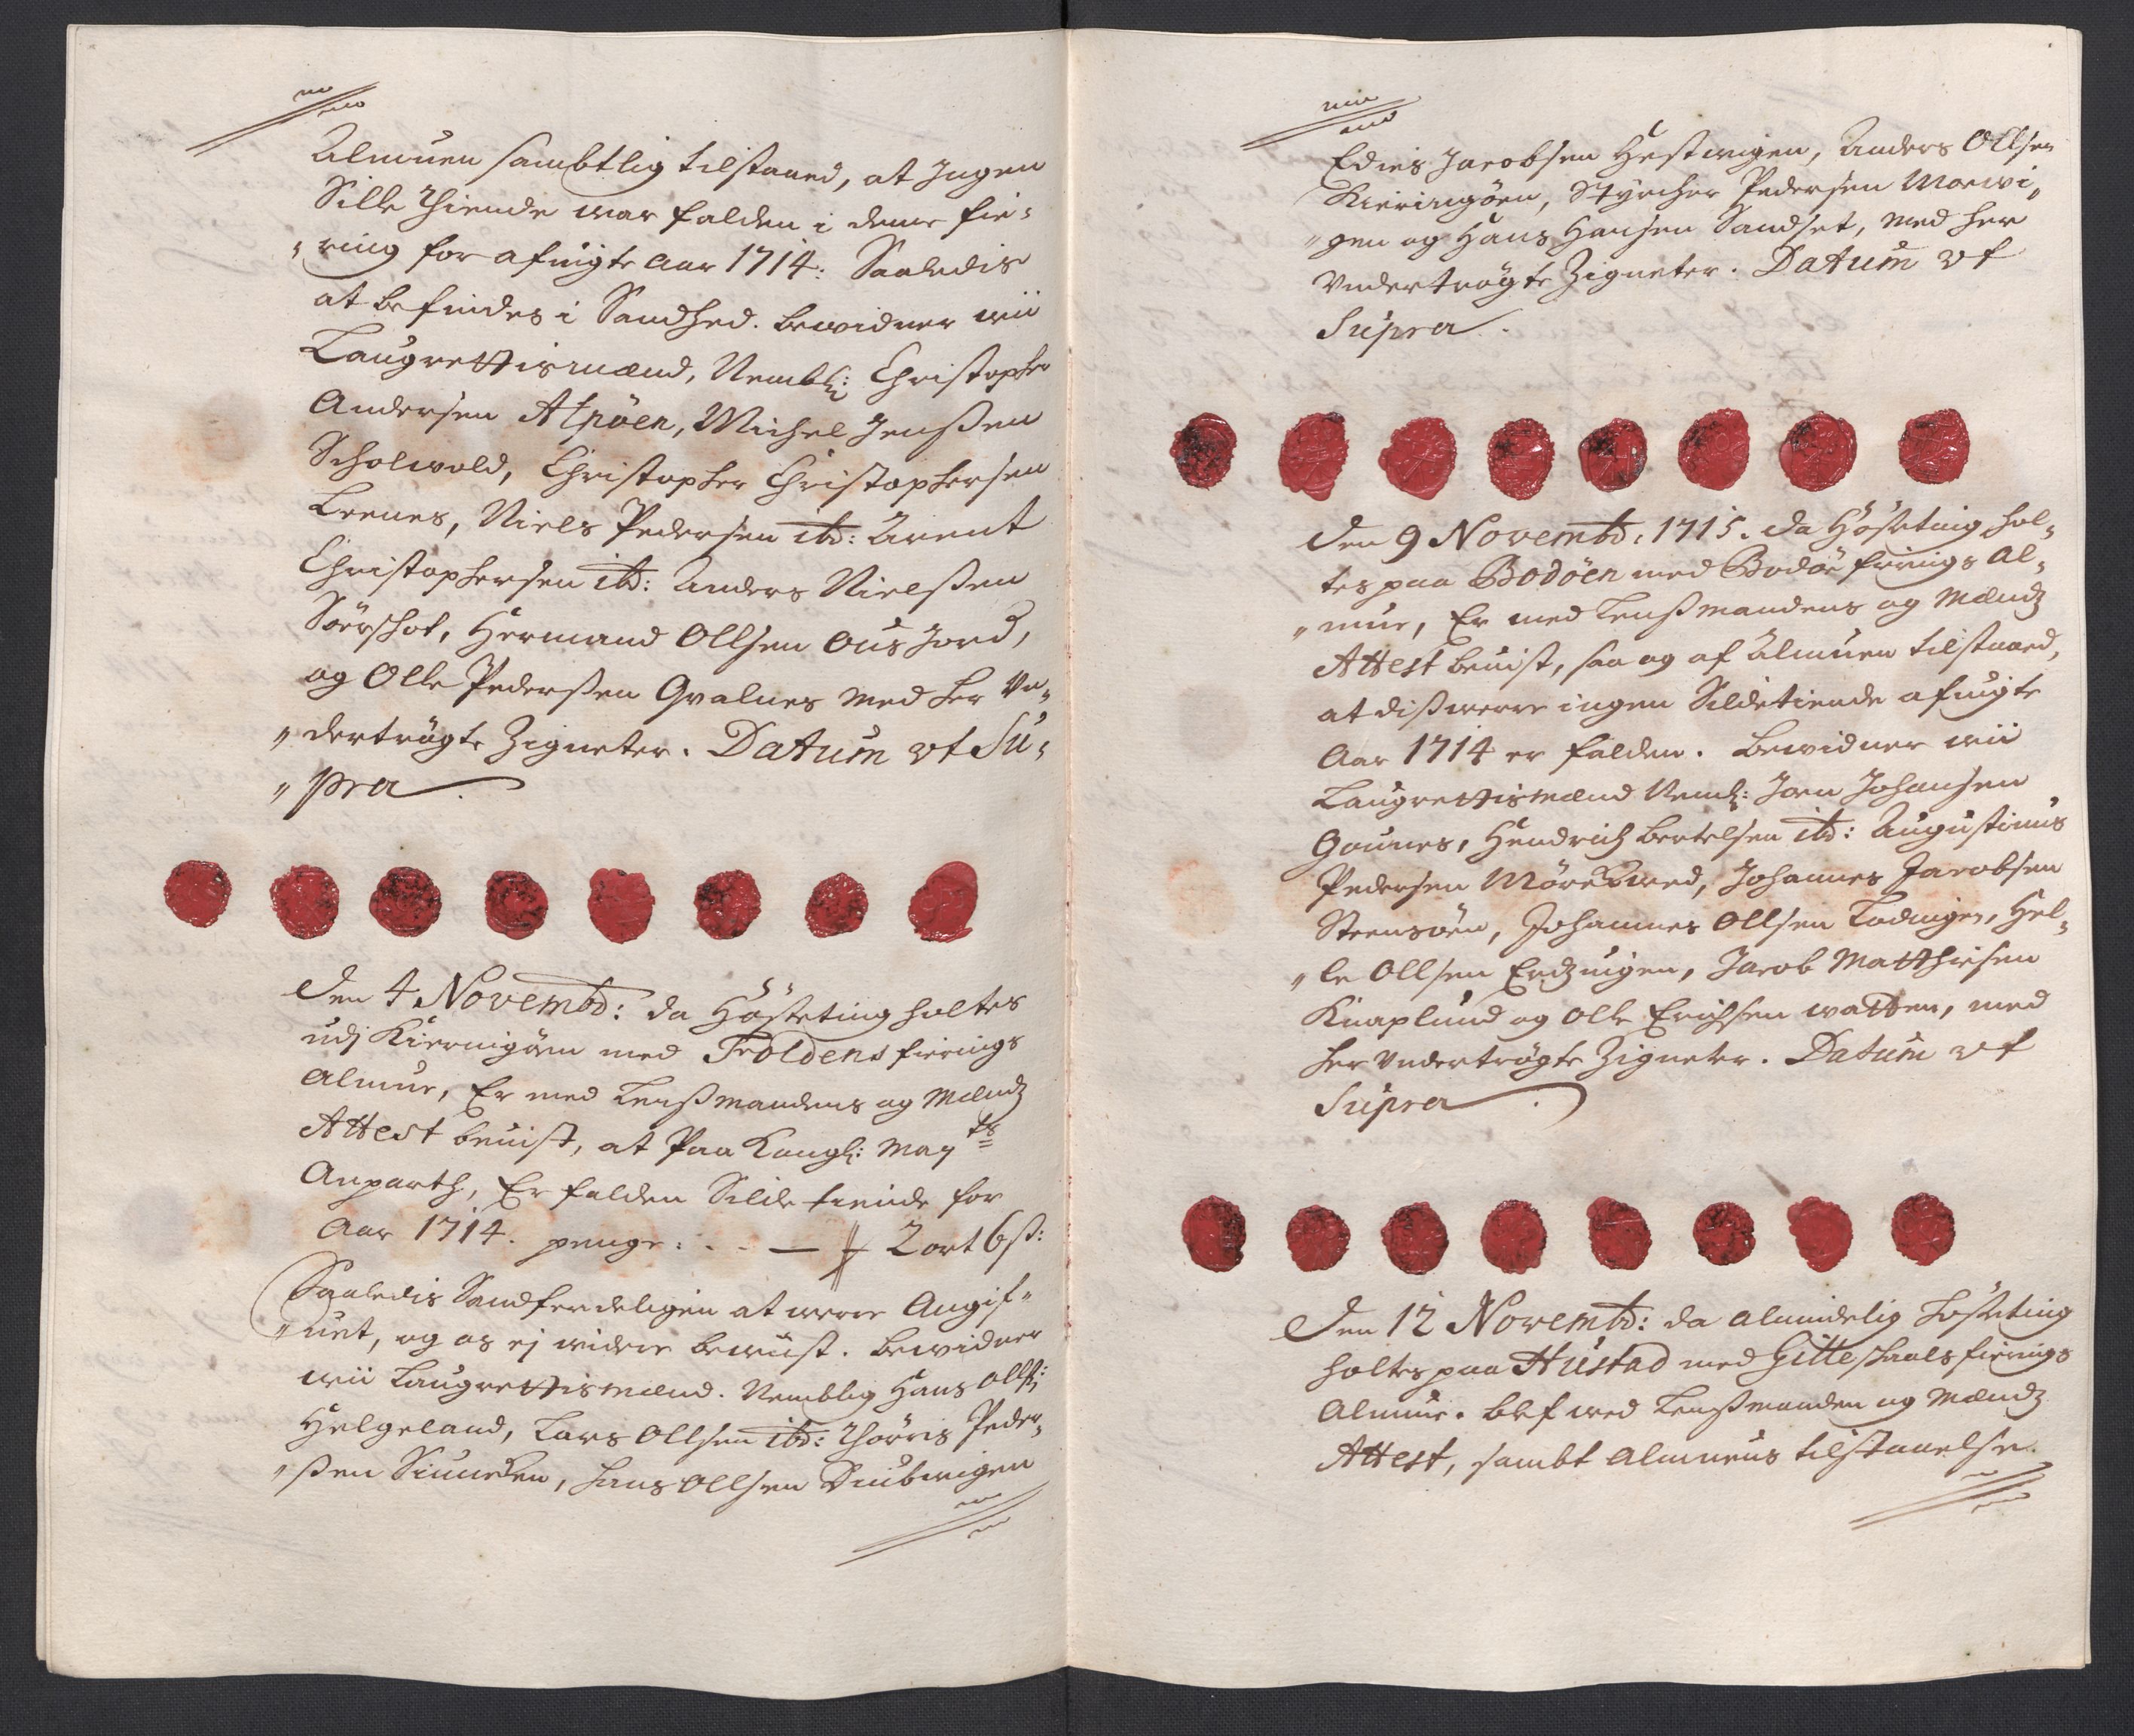 Almuen sambtlig tilstaaed, at Ingen
Silde Thiende war falden i denne fie-
"ring for afuigte aar 1714: Saaledis
at befindes i Sandhed. bewidner wii
Laugrettismænd, Nembl: Christopher
Andersen Alpöen, Michel Jenßen
Scholwold, Christopher Christophersen
Leenes, Niels Pedersen ibd: Arent
Christophersen ibd: Anders Nielßen
Sörschot, Hermand Ollsen Ousjord,
og Olle Pederßen Qvalnes med her Un-
"dertrögte Zigneter. Datum vt Su-
"pra.
Den 4 Novembr: da Hösteting holtes
udj Kierringöen med Foldens fierings
Almue, Er med Lenßmandens og Mændz
Attest beuist, at Paa Kongl: May ts
Anparth, Er falden Silde tiende for
Aar 1714. penge: . . - — 2 ort 6 ß:
Saaledis Sandferdeligen at were Angif-
"uet, og os ej widere bewust. bewidner
wii Laugrettismænd. Nemblig Hans Ollß:
Helgeland, Lars Ollsen ibd: Thorris Peder-
"ßen , Hans Ollsen
Edies Jacobsen Hestwigen, Anders Ollsen
Kierringöen, Styrcher Pedersen Morwi-
"gen og Hans Hansen Sandset, med her
Undertrögte Zigneter. Datum vt
Supra.
Den 9 Novembr: 1715. da Hösteting hol-
tes paa Bodöen med Bodöe fierings Al-
"mue, Er med Lenßmandens og Mændz
Attest beuist, saa og af Almuen tilstaaed,
at dißwerre ingen Sildetiende afuigte
Aar 1714 er falden. Bewidner wii
Laugrettismænd Neml: Joen Johansen
Gounes, Hendrich Bertelsen ibd: Augustinus
Pedersen Mörcksved, Johannes Jacobsen
Steensöen, Johannes Ollsen Lödingen, Hel-
"le Ollsen , Jacob Matthisen
Knaplund og Olle Erichsen Watten, med
her Undertrögte Zigneter. Datum vt
Supra.
Den 12 Novembr: da almindelig hösteting
holtes paa Hustad med Gilleschaals fierings
Almue. blef med Lenßmanden og Mændz
Attest, sambt Almuens tilstaaelse.